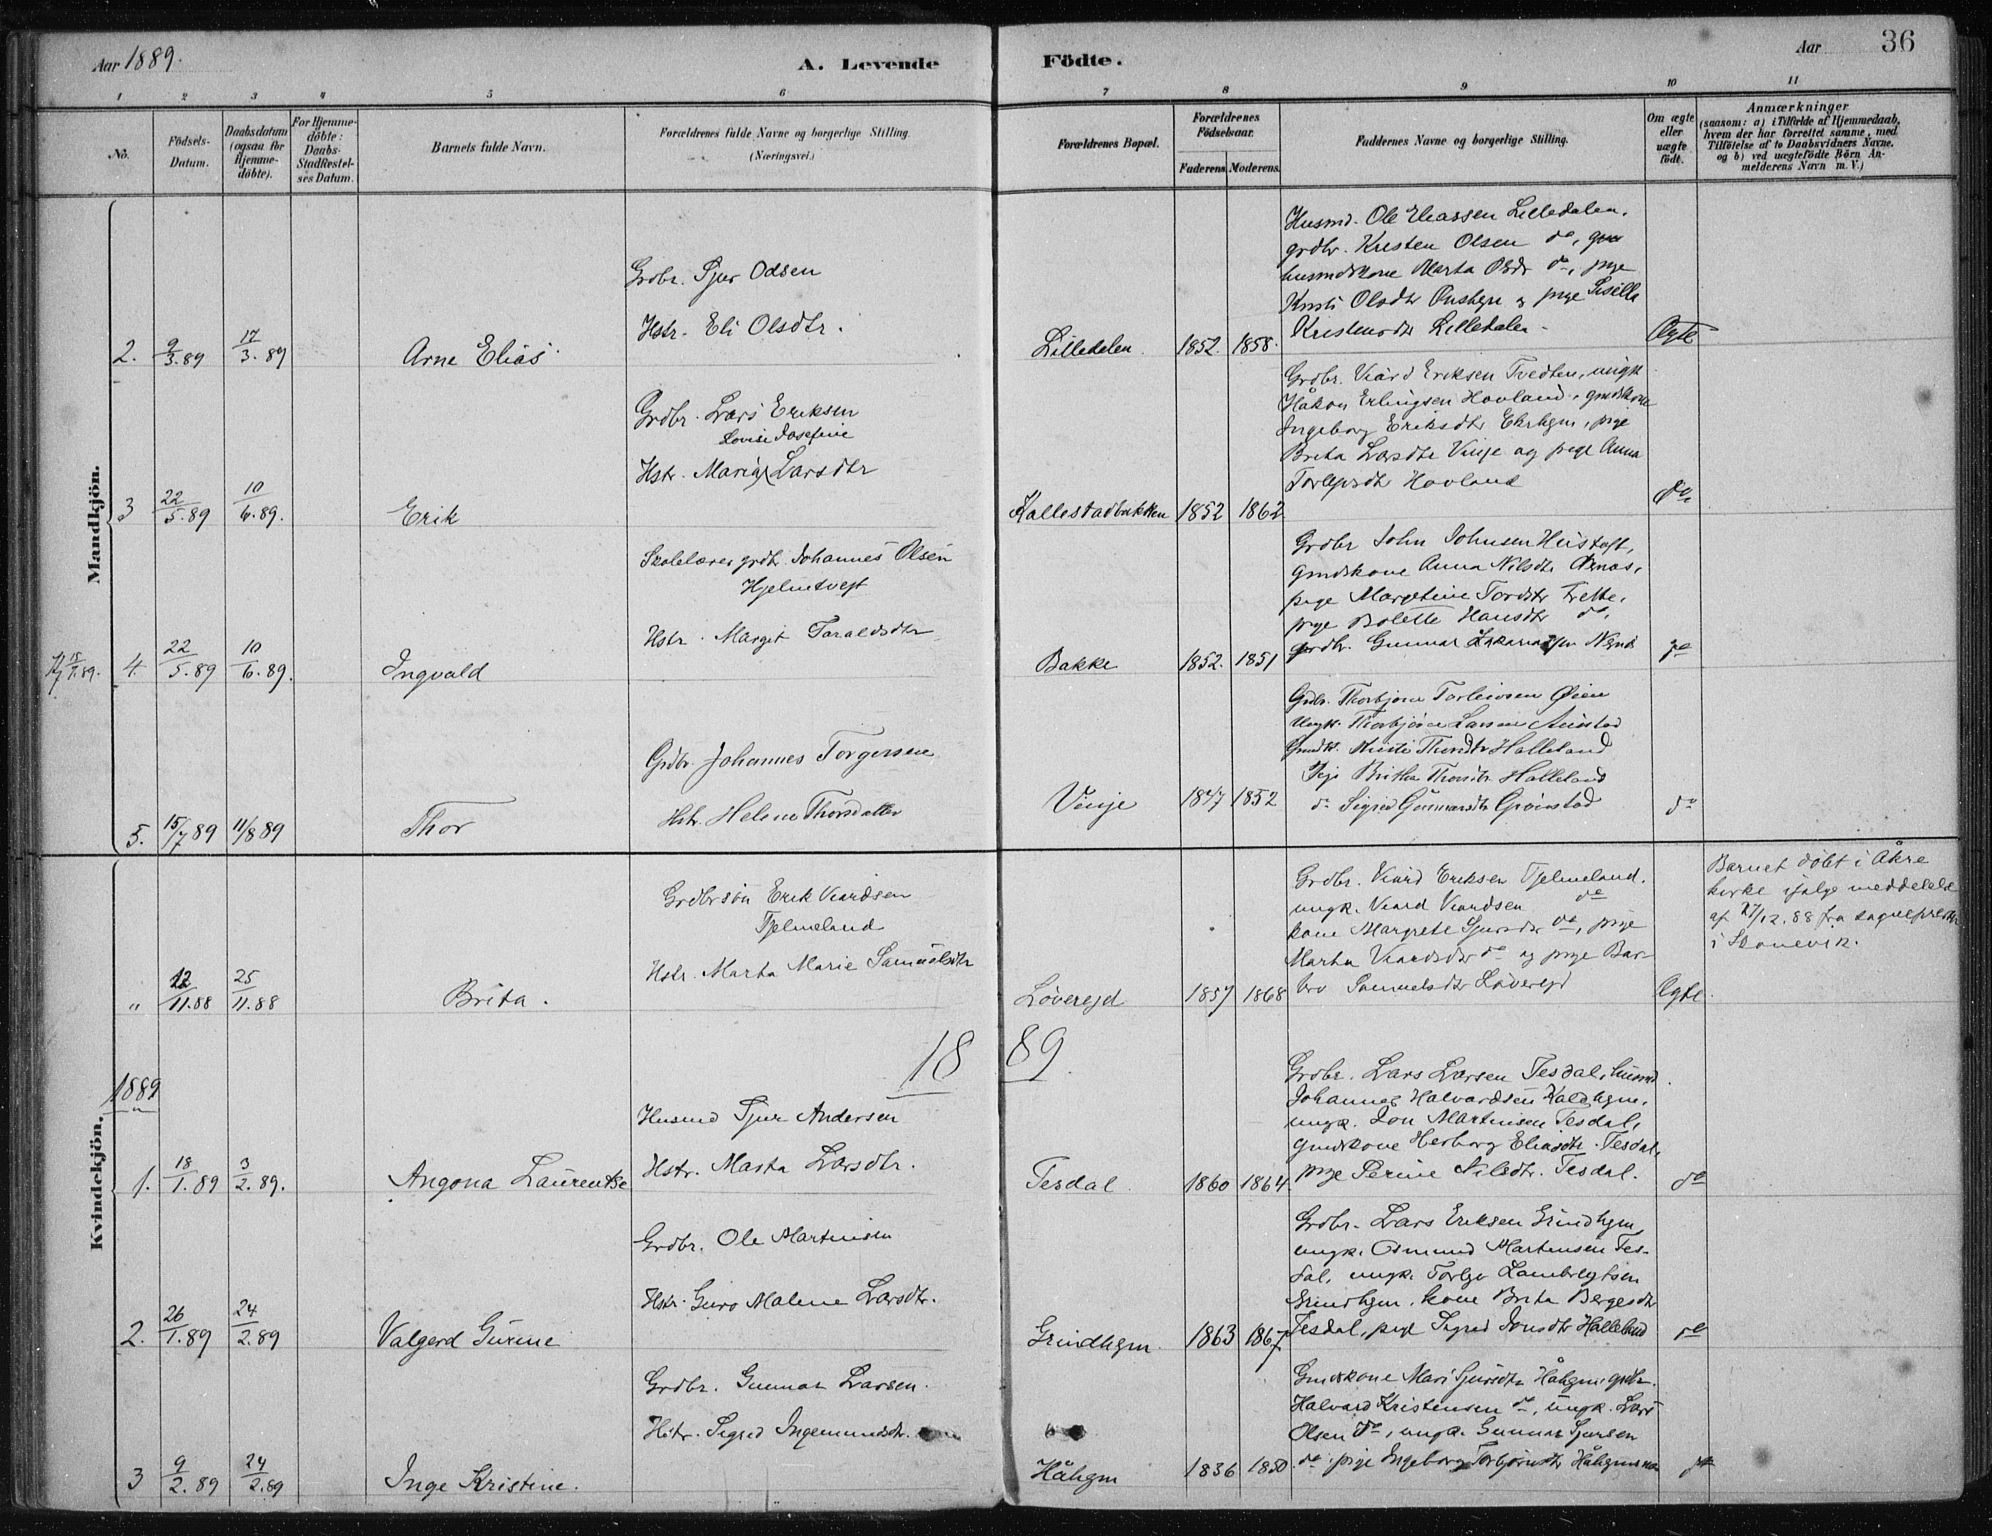 Aar 1889. A. Levende Födte. Aar 36
1 2 3 4 5 6 7 8 9 10 11
No. Födsels-Datum. Daabsdatum (ogsaa for Hjemme-döbte). For Hjemme-döbte: Daabs-Stadfæstel-ses Datum. Barnets fulde Navn. Forældrenes fulde Navne og borgerlige Stilling. (Næringsvei.) Forældrenes Bopæl. Forældrenes Födselsaar. Faderens. Moderens. Faddernes Navne og borgerlige Stilling. Om ægte eller uægte födt. Anmærkninger (saasom: a) i Tilfælde af Hjemmedaab, hvem der har forrettet samme, med Tilföielse af to Daabsvidners Navne, og b) ved uægtefödte Börn An-melderens Navn m. V.)
Mandkjön.
Husmd. Ole Eliassen Lilledalen,
grdbr. Kristen Olsen do,
husmdskone Marta Olsdr do, pige
Kristi Olsdtr og pige Sisilla
Kristensdtr Lilledalen.
Grdbr. Sjur Odsen
Hstr. Eli Olsdtr.
2. 9/3.89 17/3.89 Arne Elias Lilledalen 1852. 1858. Ægte
Grdbr. Viård Eriksen Tvedten, ungk.
Håkon Erlingsen Hovland, gmdskone
Ingeborg Eriksdtr, pige
Brita Larsdtr Vinje og pige Anna
Torleifsdtr Hovland
Grdbr. Lars Eriksen
Lovise Josefine
Hstr. Maria Larsdtr
3 22/5.89 10/6.89. Erik Kallestadbakken 1852 1862 do
Grdbr John Johnsen Heistoft,
gmdskone Anna Nilsdtr Ærnæs,
pige Margetine Tordsdtr Frette,
pige Bolette Hansdtr do,
grdbr. Gunnar Sakariassen
Skolelærer grdbr. Johannes Olsen
Hjelmtveft
Hstr. Margit Taraldsdtr
15/7.89. 4. 22/5.89 10/6.89. Ingvald Bakke 1852. 1851 do
Grdbr. Thorbjørn Torleivsen Øien
Ungk. Thorbjørn Larsen
Gmdk. Thorsdtr Halleland
Pige Britha Thorsdtr Halleland
do Sigrid Gunnarsdtr Grønstad
Grdbr. Johannes Torgersen
Hstr. Helene Thorsdatter
5. 15/7 89 11/8 89 Thor Vinje 1847 1852 do
Kvindekjön.
Grdbr. Viard Eriksen Fjelmeland.
ungk. Viard Viardsen do
kone Margrete Sjursdtr do, pige
Marta Viardsdtr do og pige Bar-
bro Samuelsdtr Løvereid
Grdbrsøn Erik Viardsen
Fjelmeland
Hstr. Marta Marie Samuelsdtr
" 12/11.88 25/11.88 Brita. Løvereid 1857 1868 Ægte.
Barnet döbt i Åkre
kirke ifølge meddelelse
af 27/12.88 fra sogneprest
i Skonevik.
1889
1889
Grdbr. Lars Larsen Tesdal, husmd
Johannes Halvardsen
ungk. Jon Martinsen Tesdal,
gmdskone Herborg Eliasdtr. Tesdal,
pige Perine Nilsdtr. Tesdal.
Husmd Sjur Andersen
Hstr. Marta Larsdtr.
1. 18/1.89 3/2.89. Angona Laurentse Tesdal 1860 1864 do
Grdbr. Lars Eriksen Grindhgm,
ungk. Osmund Martinsen Tes-
dal, ungk. Torlge Lambregtsen
Grindhgm. kone Brita Bergesdtr
Tesdal, pige Sigrid Jonsdtr Halleland
Grdbr. Ole Martinsen
Hstr. Guro Malene Larsdtr.
2. 26/1.89 24/2.89 Valgerd Gurine Grindhgm. 1863 1867 do
Gmdskone Mari Sjursdtr Håhgm, grdbr.
Halvard Kristensen do, ungk. Lars
Olsen do, ungk. Gunnar Sjursen
do, pige Ingeborg Torbjørnsdtr
Grdbr. Gunnar Larsen.
Hstr. Sigrid Ingemundsdtr.
3 9/2.89 24/2.89 Inge Kristine. Håhgm 1836 1850 do